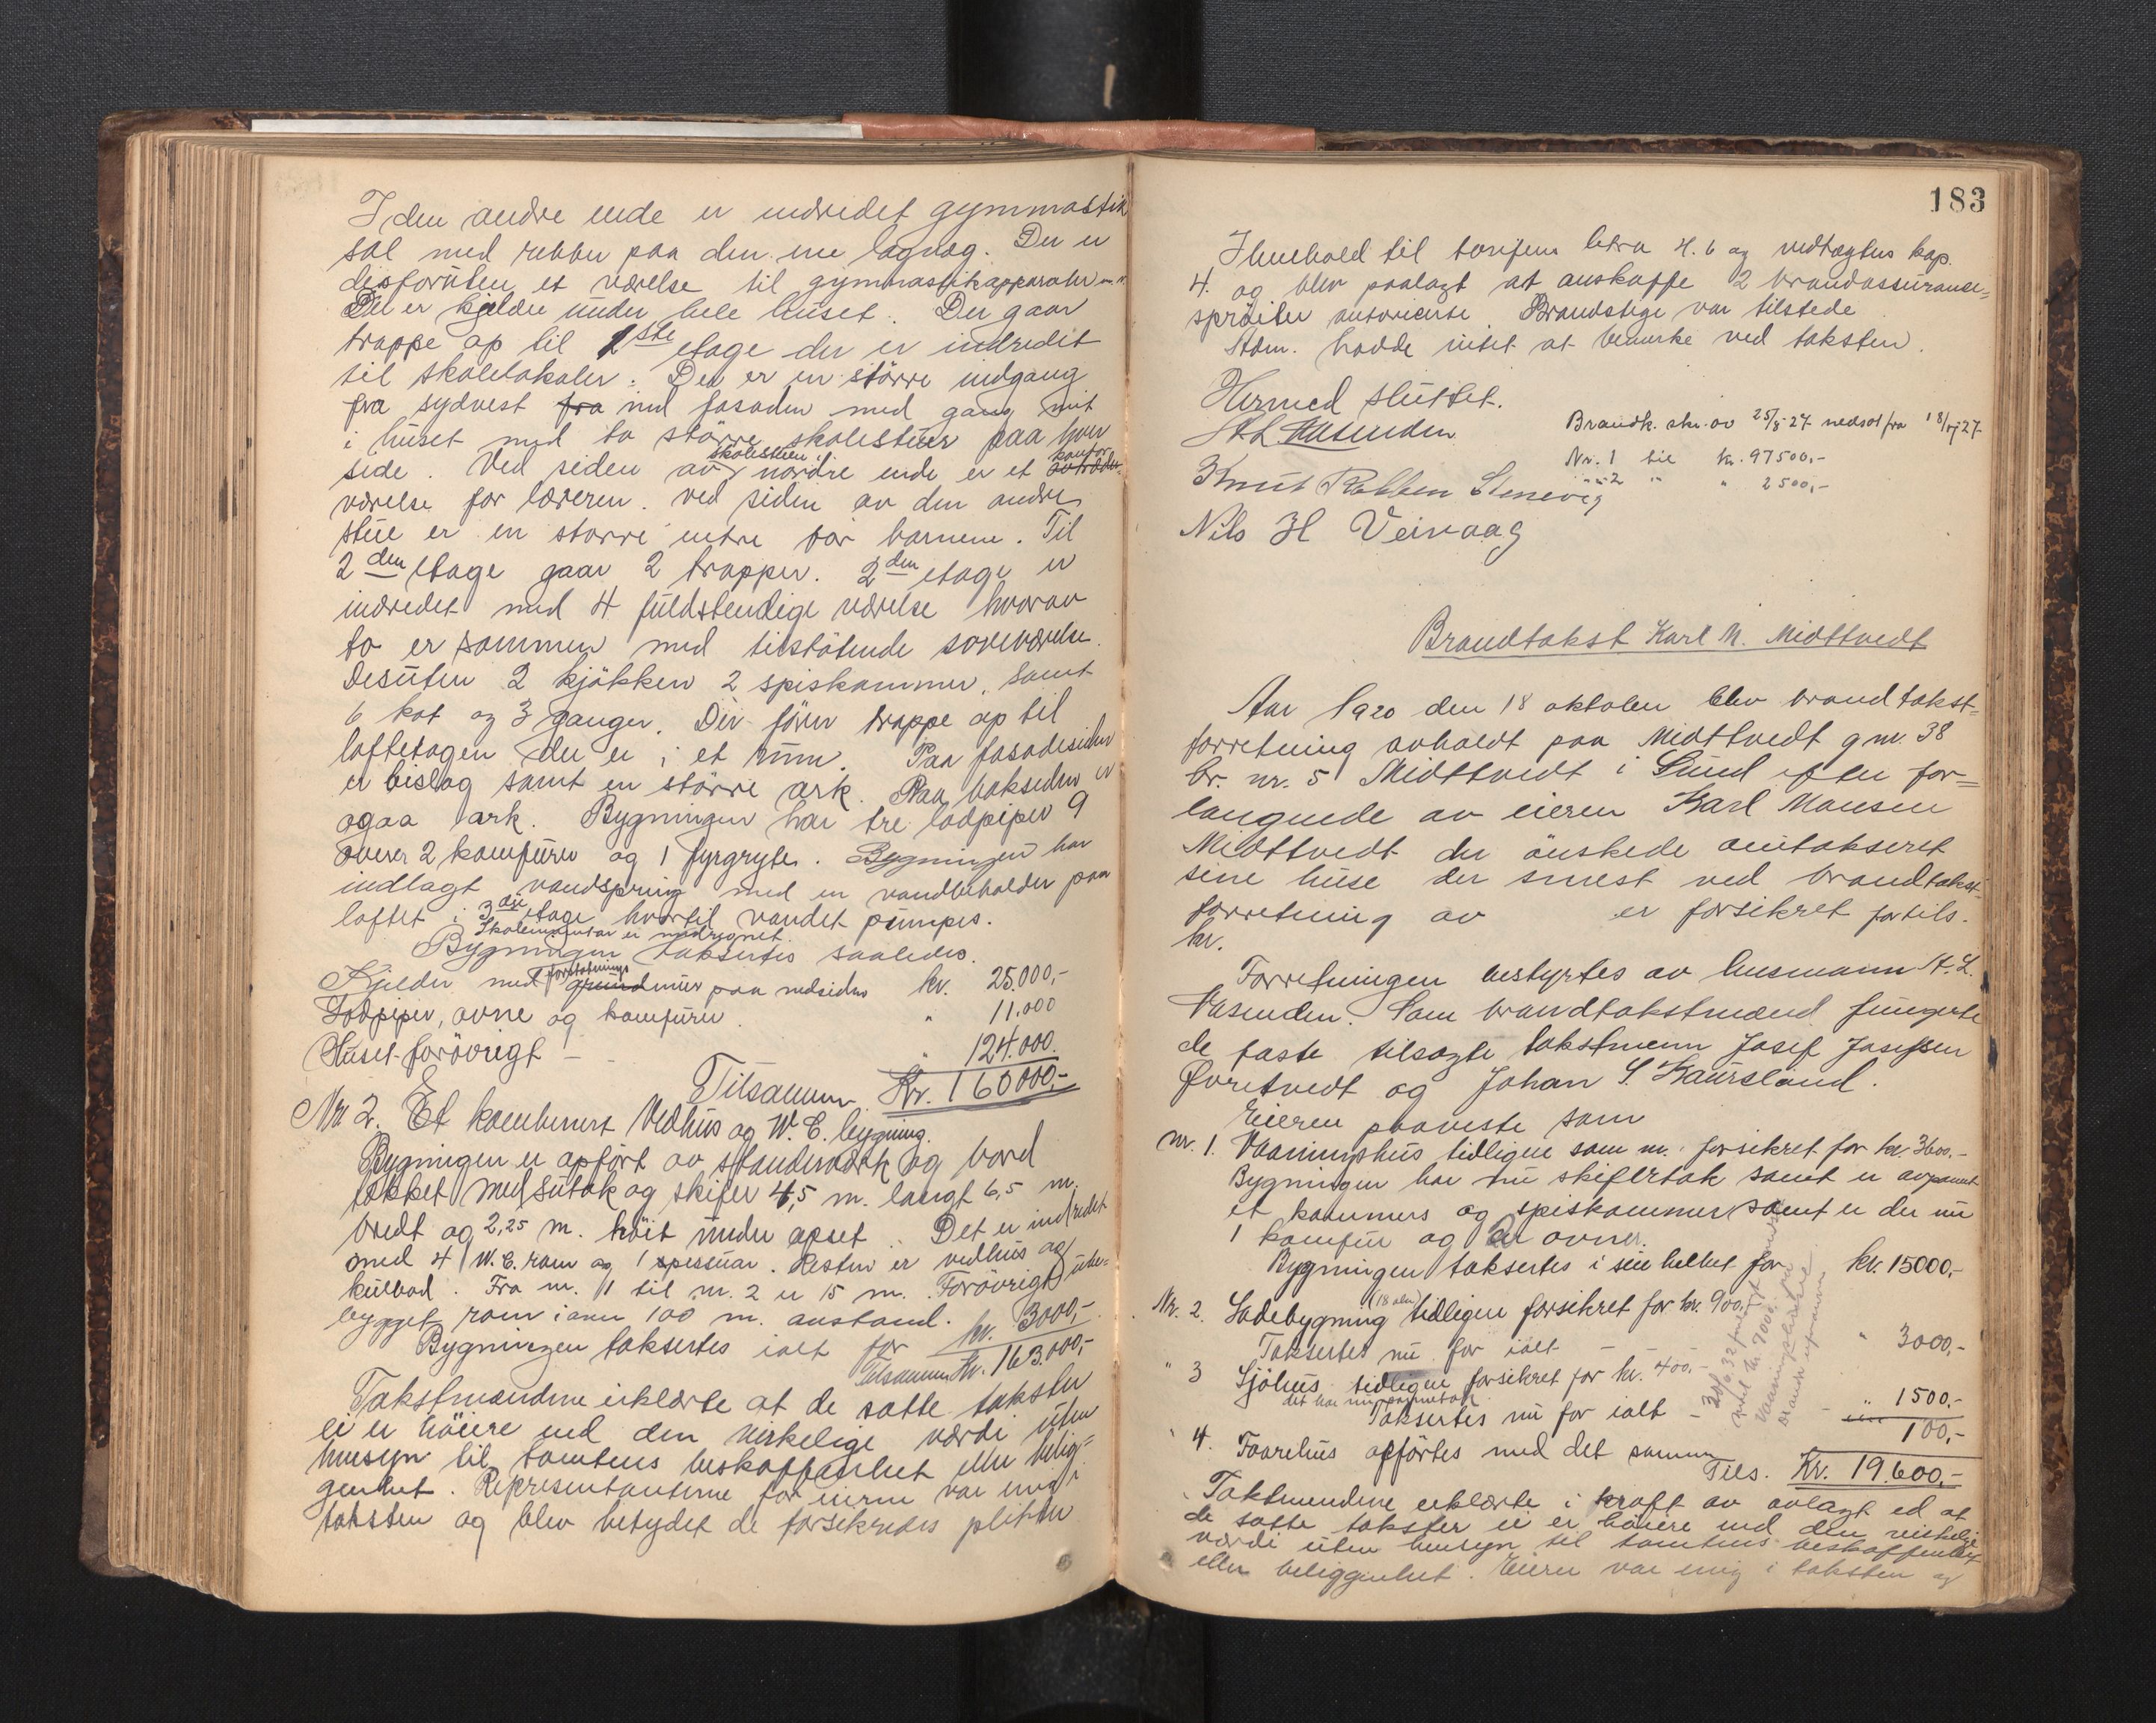 I den andre ende er indredet gymmastik
sal med ribber paa den ene lagvæg. Der er
desforuten et værelse til gymnastikapparater m.m.
Det er kjelder under hele huset. Der gaar
trappe op til 1ste etage der er indredet
til skolelokaler. Der er en större indgang
fra sydvest fra ind fasaden med gang mit
i huset med to större skolestuer paa hver
side. Ved siden av skolestuen i nordre ende er et kontor
værelse for læreren. ved siden av den andre
stue er en större entre for barnene. Til
2den etage gaar 2 trapper. 2den etage er
indredet med 4 fuldstendige værelse hvorav
to er sammen med tilstötende soveværelse.
Desuten 2 kjökken 2 spiskammer, samt
6 kot og 3 ganger. Der förer trappe op til
loftetagen der er i et rum. Paa fasadesiden
er bislag samt en större ark. Paa baksiden er
ogsaa ark. Bygningen har tre lodpiper 9
ovner 2 komfurer og 1 fyrgryte. Bygningen har
indlagt vandspring med en vandbeholder paa
loftet i 3die etage hvortil vandet pumpes.
Skoleinventar er medregnet.
Bygningen taksertes saaledes.
Kjelder med forstøtnings grundmur paa nedsiden kr. 25.000,-
Lodpiper, ovne og komfurer " 11.000
Huset forövrigt - " 124.000.
Tilsammen Kr. 160000,-
Nr 2. Et kombinert Vedhus og W.C. bygning.
Bygningen er opfört av standerværk og bord
tækket med sutak og skifer 4,5 m. langt 6,5 m.
bredt og 2,25 m. höit under opset. Det er indredet
med 4 W.C. rom og 1 spissuar. Resten er vedhus og
kulbod. Fra nr. 1 til nr. 2 er 15 m. Forövrigt ube=
bygget rom i over 100 m. avstand.
Bygningen taksertes ialt for kr. 3000,-
Tilsammen Kr. 163.000,-
Takstmændene erklærte at de satte takster
ei er höiere end den virkelige værdi uten
hensyn til tomtens beskaffenhet eller belig=
genhet. Representanterne for eieren var enig i
taksten og blev betydet de forsikredes plikter
183
I henhold til tarifens litra 4. 6 og vedtægtens kap.
4. og blev paalagt at anskaffe 2 brandassurance=
spröiter autoriserte. Brandstige var tilstede
Adm. hadde intet at bemerke ved taksten.
Hermed sluttet.
A L Vasenden
Brandk. skr. av 25/8-27 nedsat fra 18/7 27
Nr. 1 til kr. 97500,-
" 2 " " 2500,-
Knut Rabben Stenevig
Nils H Veivaag
Brandtakst Karl M. Midttvedt
Aar 1920 den 18 oktober blev brandtakst=
forretning avholdt paa Midttvedt g nr. 38
br. nr. 5 Midttvedt i Sund efter for=
langende av eieren Karl Monsen
Midttvedt der önskede omtakseret
sine huse der senest ved brandtakst
forretning av er forsikret for tils.
kr.
Forretningen bestyrtes av lensmann A. L.
Vasenden. Som brandtakstmænd fungerte
de faste tilsagte takstmenn Josef Josefsen
Øvretvedt og Johan S. Kaursland.
Eieren paaviste som
nr. 1. Vaaningshus tidligere som nr. forsikret for kr. 3600.-
Bygningen har nu skifertak samt er avpanet
et kammers og spiskammer samt er der nu
1 komfur og 2 ovner.
Bygningen taksertes i sin helhet for kr. 15000,-
Nr. 2. Ladebygning (18 alen) tidligere forsikret for kr. 900,-
Taksertes nu for ialt - " 3000,-
" 3 Sjöhus tidligere forsikret for kr. 400,-
det har nu
Taksertes nu for ialt - " 1500,-
" 4. Taarehus opförtes med det samme 100,-
Tils. Kr. 19.600,-
Takstmendene erklærte i kraft av avlagt ed at
de satte takster ei er höiere end den virkelige
værdi uten hensyn til tomtens beskaffenhet
eller beliggenhet. Eieren var enig i taksten og